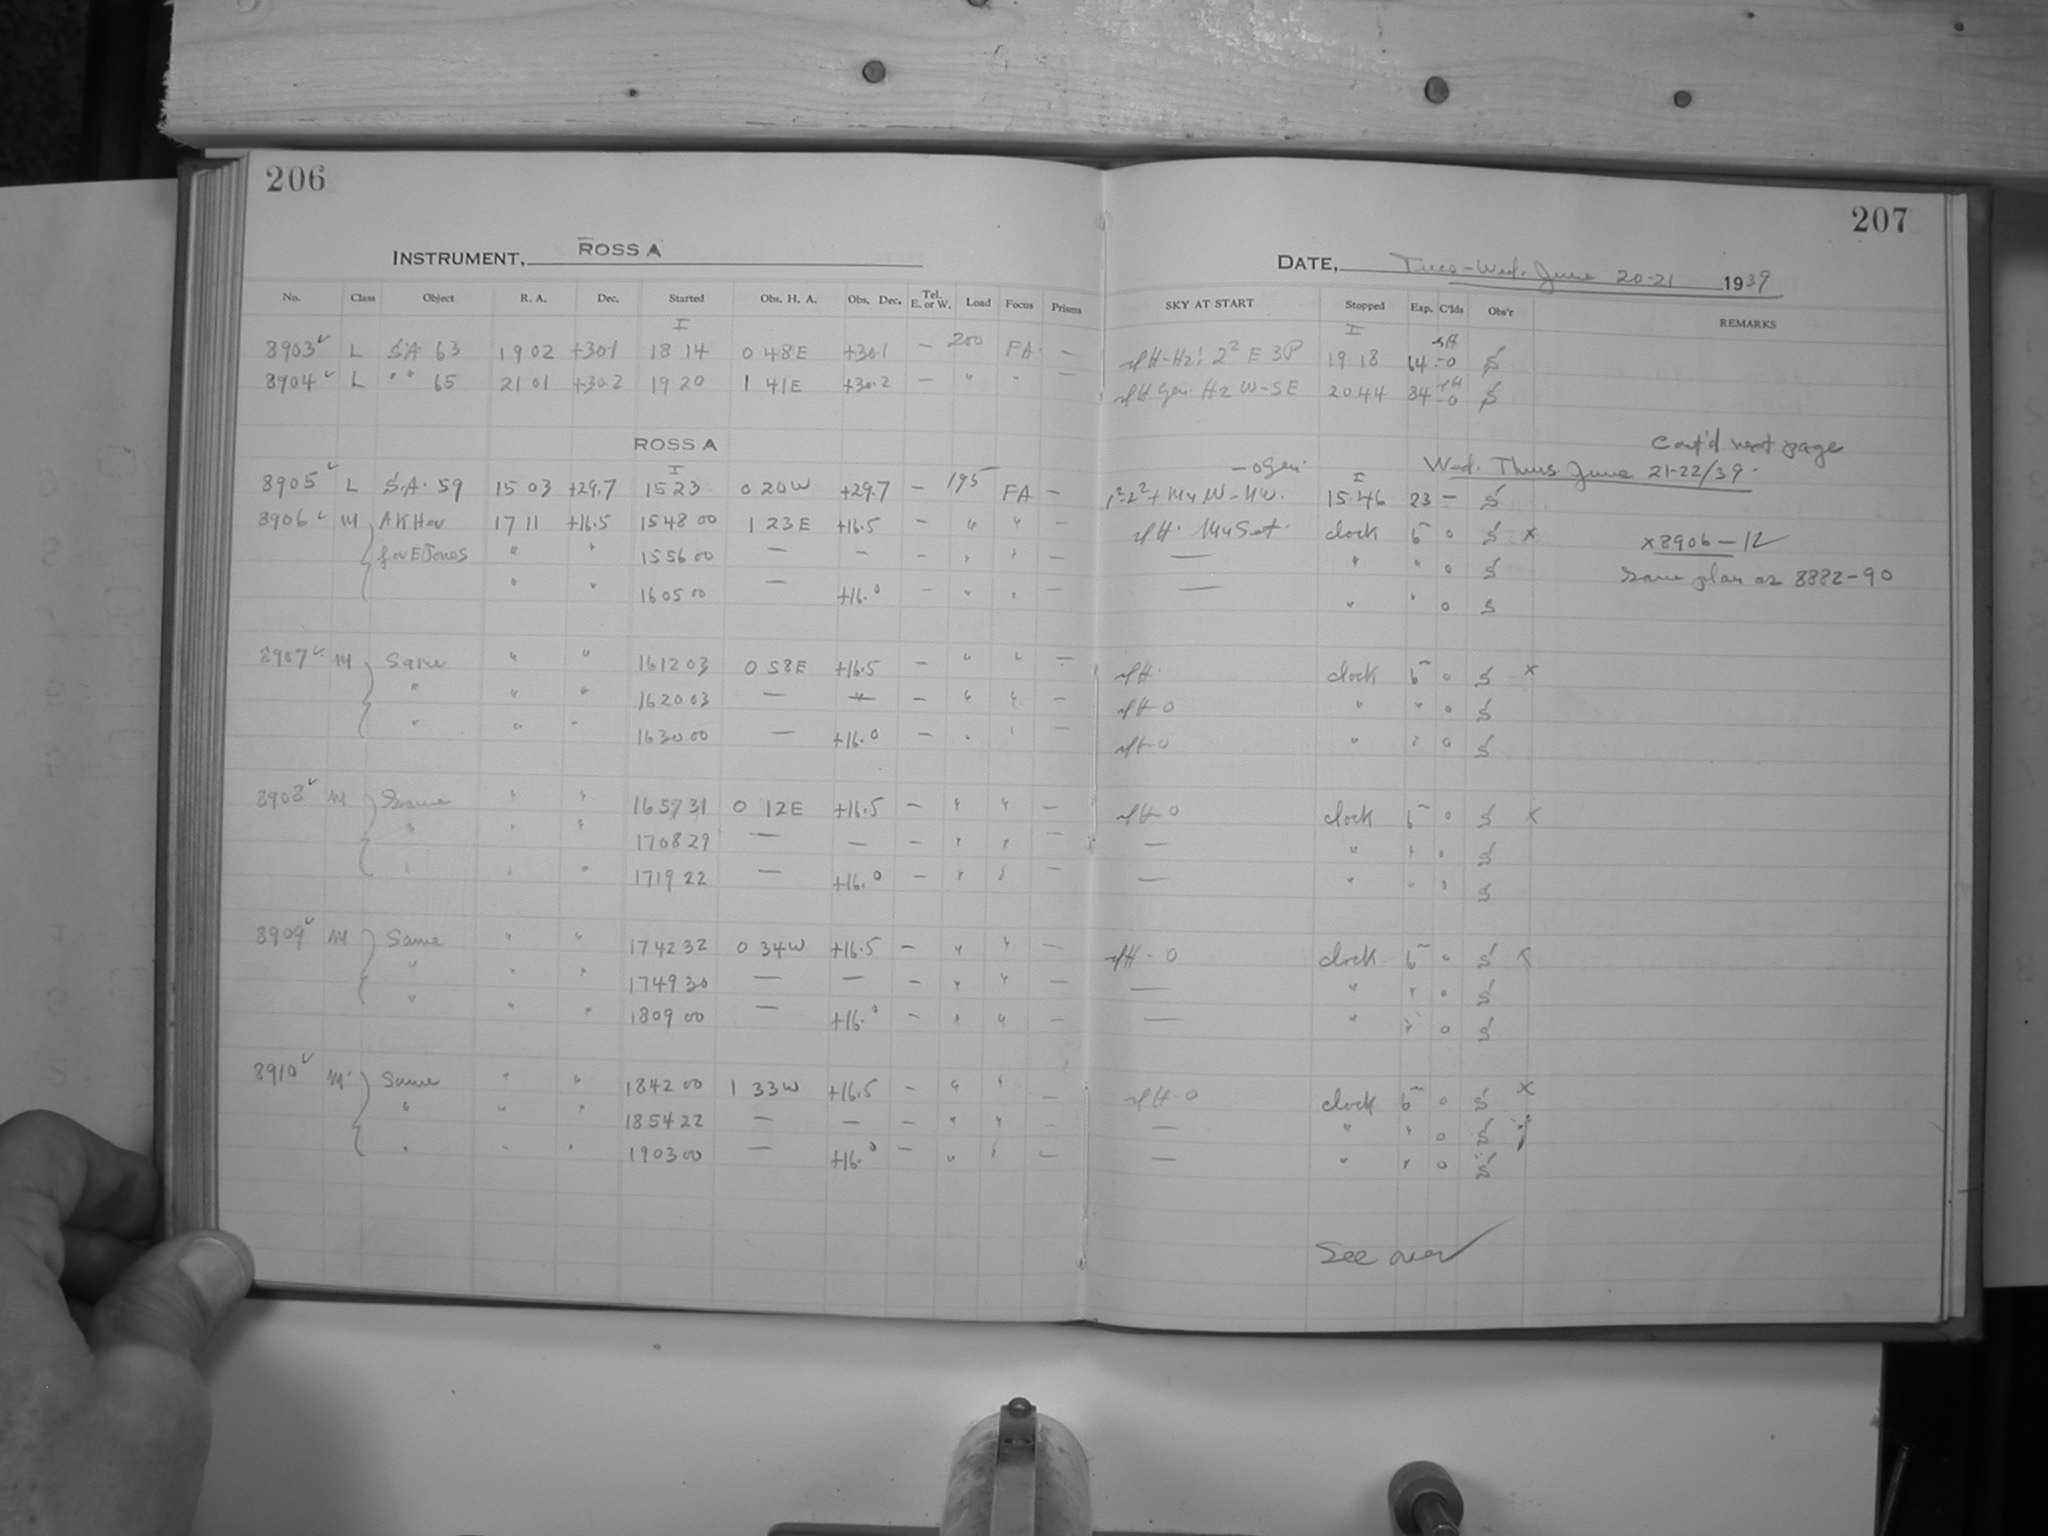 206
207
INSTRUMENT, ROSS A
DATE, Tues-Wed. June 20-21 1939
No. Class Object R. A. Dec. Started Obs. H. A. Obs. Dec. Tel. E. or W. Load Focus Prisms SKY AT START Stopped Exp. C'lds Obs'r REMARKS
I I
8903 L S.A. 63 19 02 +30.1 18 14 0 48E +30.1 — 200 FA. — 19 18 64 -0 S
8904 L " " 65 21 01 +30.2 19 20 1 41E +30.2 — " " — Gen. Hz W-SE 20 44 84 -0 S
Cont'd next page
ROSS A
Wed. Thurs. June 21-22/39.
I I
8905 L S.A. 59 15 03 +29.7 15 23 0 20W +29.7 — 195 FA — 15 46 23 — S
8906 M A K Her 17 11 +16.5 15 48 00 1 23E +16.5 — " " — clock 6 0 S x x 8906-12
for E Jones " " 15 56 00 — — — " " — — " " 0 S Same plan as 8882-90
" " 16 05 00 — +16.0 — " " — — " " 0 S
8907 M Same " " 16 12 03 0 58E +16.5 — " " — clock 6 0 S x
" " " 16 20 03 — — — " " — " " 0 S
" " " 16 30 00 — +16.0 — " " — " " 0 S
8908 M Same " " 16 57 31 0 12E +16.5 — " " — clock 6 0 S x
" " " 17 08 29 — — — " " — — " " 0 S
" " " 17 19 22 — +16.0 — " " — — " " 0 S
8909 M Same " " 17 42 32 0 34W +16.5 — " " — clock 6 0 S x
" " " 17 49 30 — — — " " — — " " 0 S
" " " 18 09 00 — +16.0 — " " — — " " 0 S
8910 M Same " " 18 42 00 1 33W +16.5 — " " — clock 6 0 S x
" " " 18 54 22 — — — " " — — " " 0 S
" " " 19 03 00 — +16.0 — " " — — " " 0 S
See over